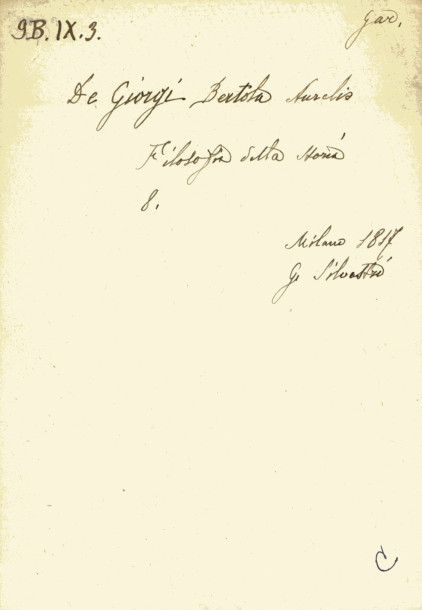 9.B.IX.3.
Gar.
De Giorgi Bertola Aurelio
Filosofia della storia
8.
Milano 1817
G. Silvestri
C